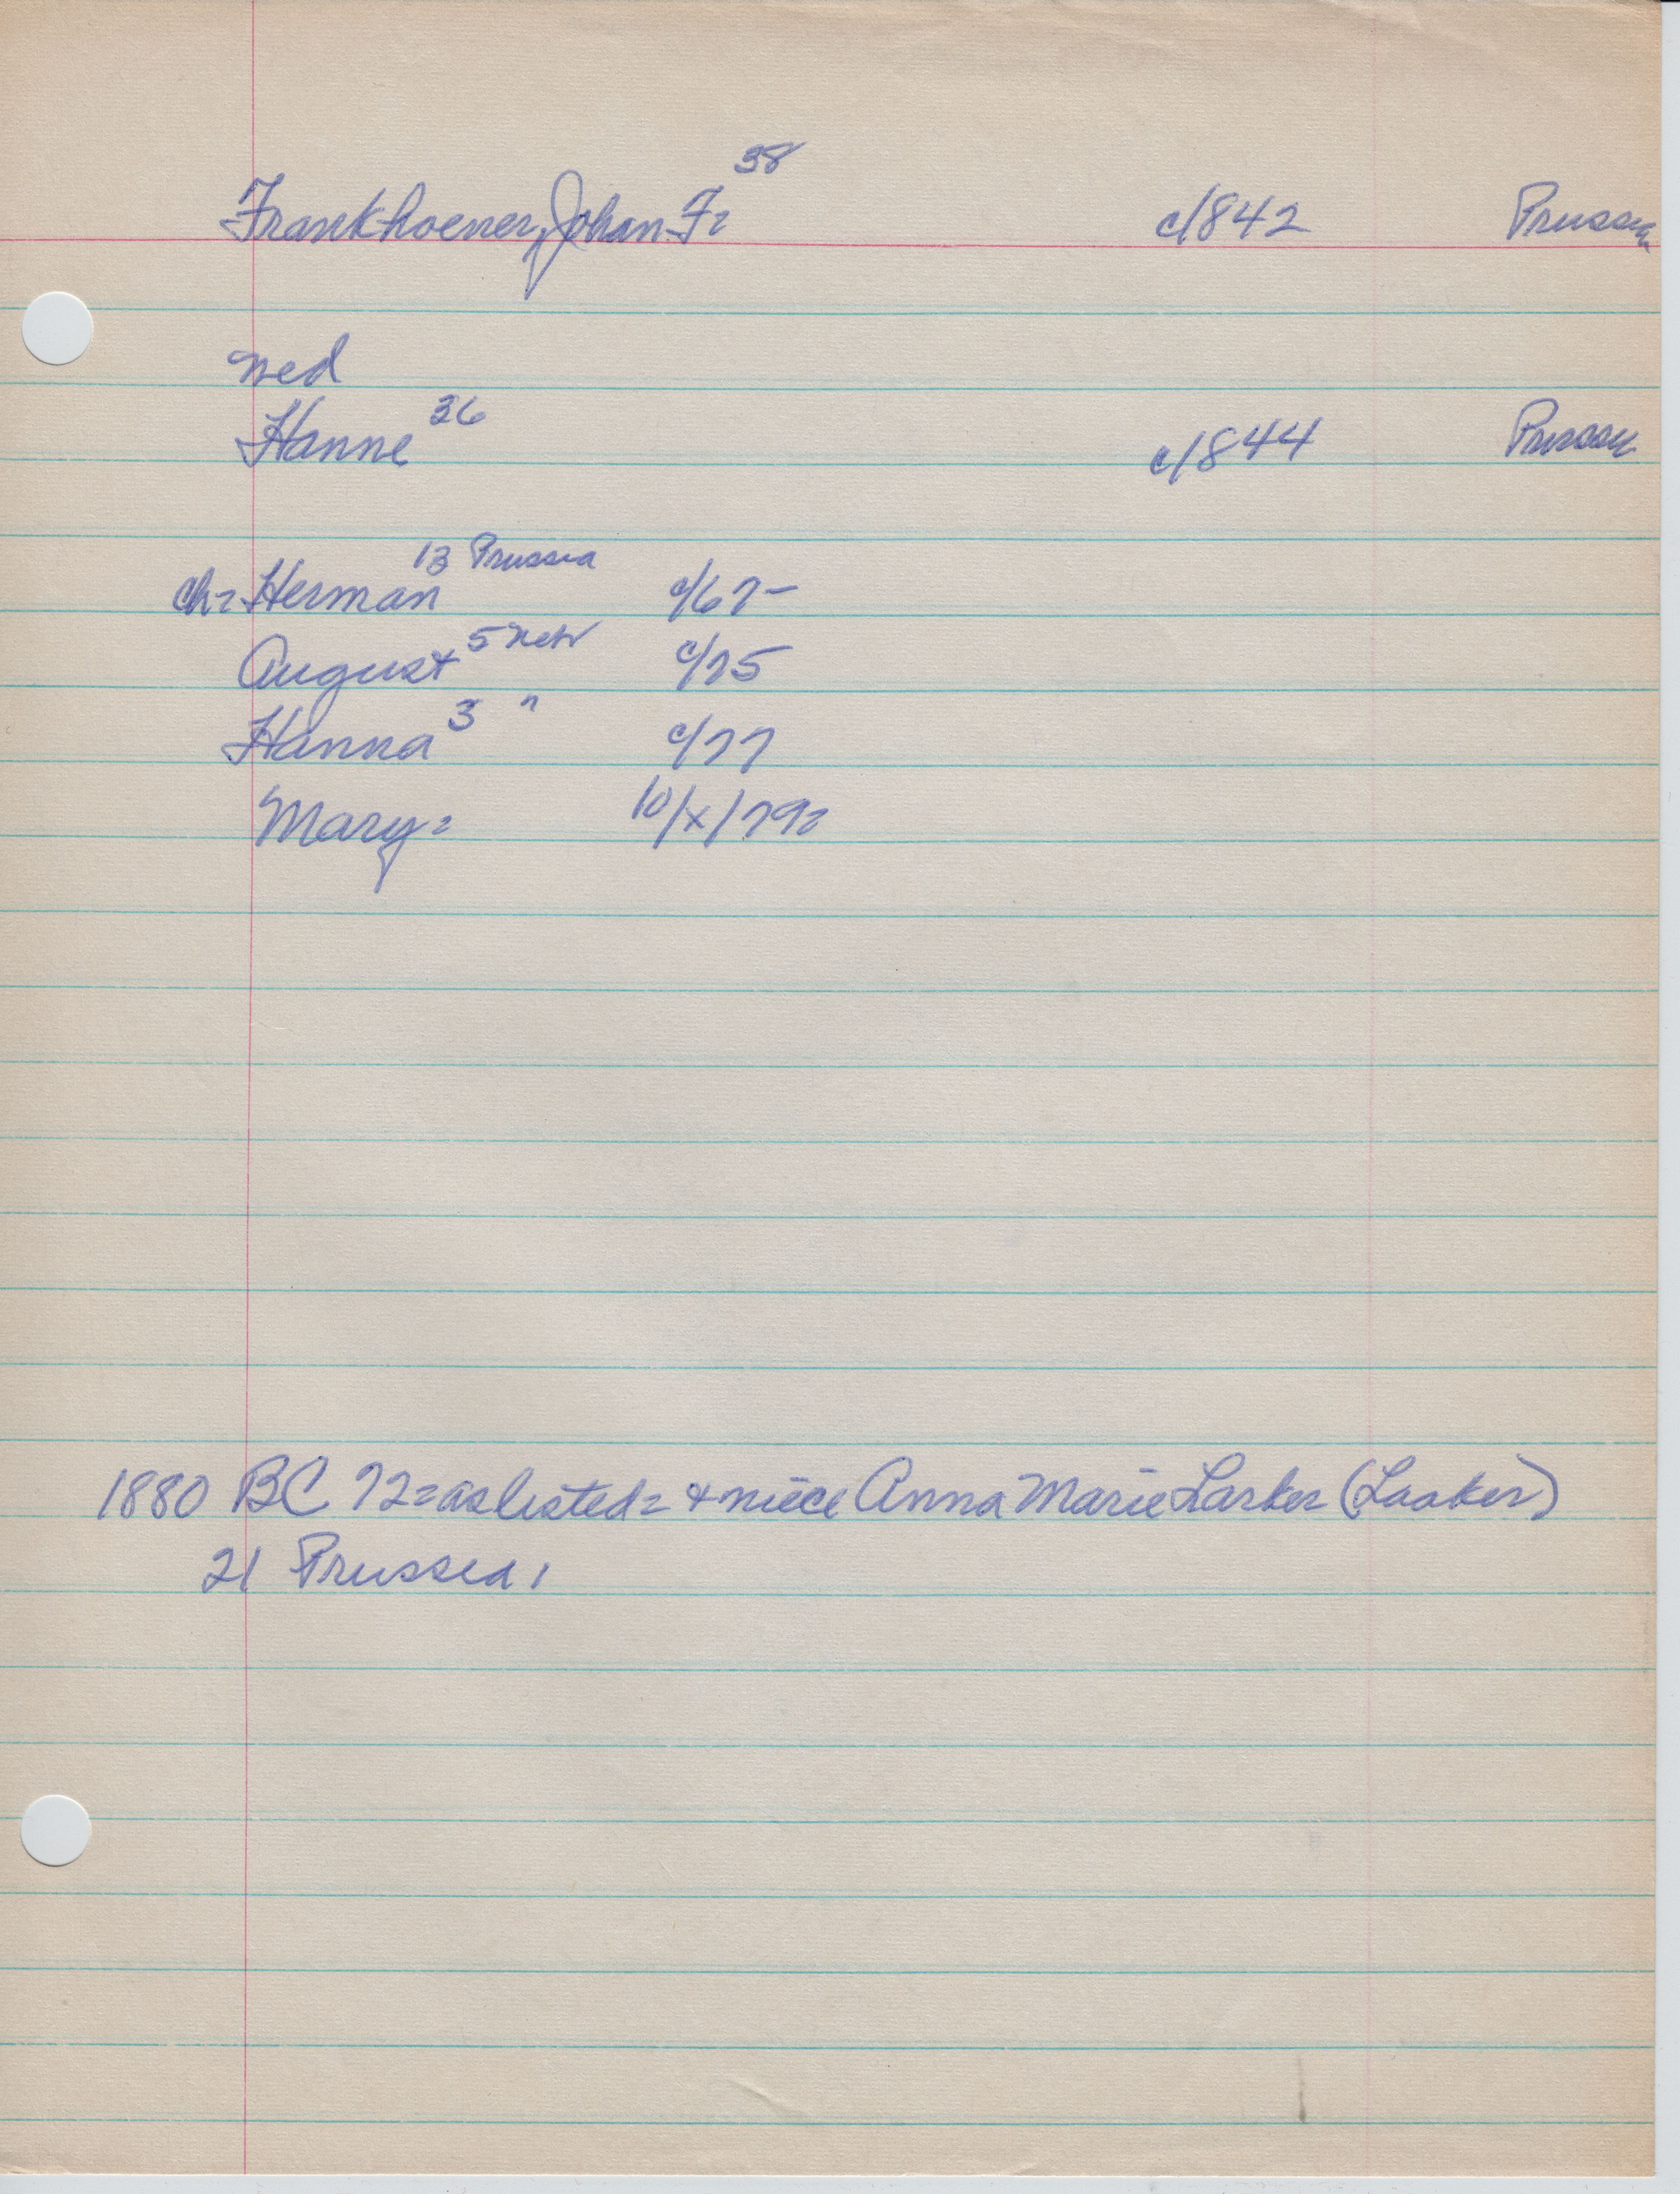 Frankhoener, Johan F= 38 c/842 Prussia
med
Hanne 36 c/844 Prussia
ch= Herman 13 Prussia c/67-
August 5 Nebr c/75
Hanna 3 " c/77
Mary= 10/x/79=
1880 BC 72= as listed= + niece Anna Marie Larker (Laaker)
21 Prussia,